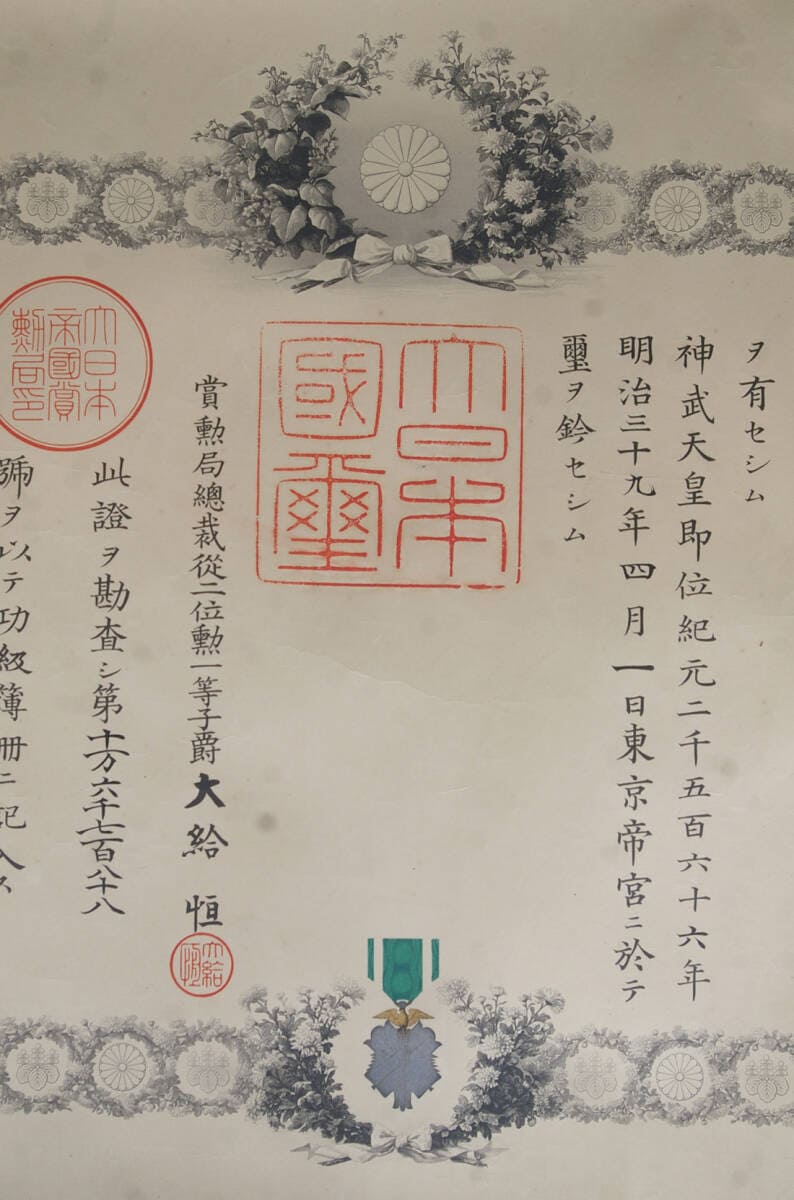 ヲ有セシム
神武天皇即位紀元二千五百六十六年
明治三十九年四月一日東京帝宮ニ於テ
璽ヲ鈐セシム
大日本
國璽
賞勲局總裁從二位勲一等子爵大給恒
大給
恒
大日本
帝國賞
勲局印
此證ヲ勘査シ第十万六千七百八十八
號ヲ以テ功級簿冊ニ記入ス